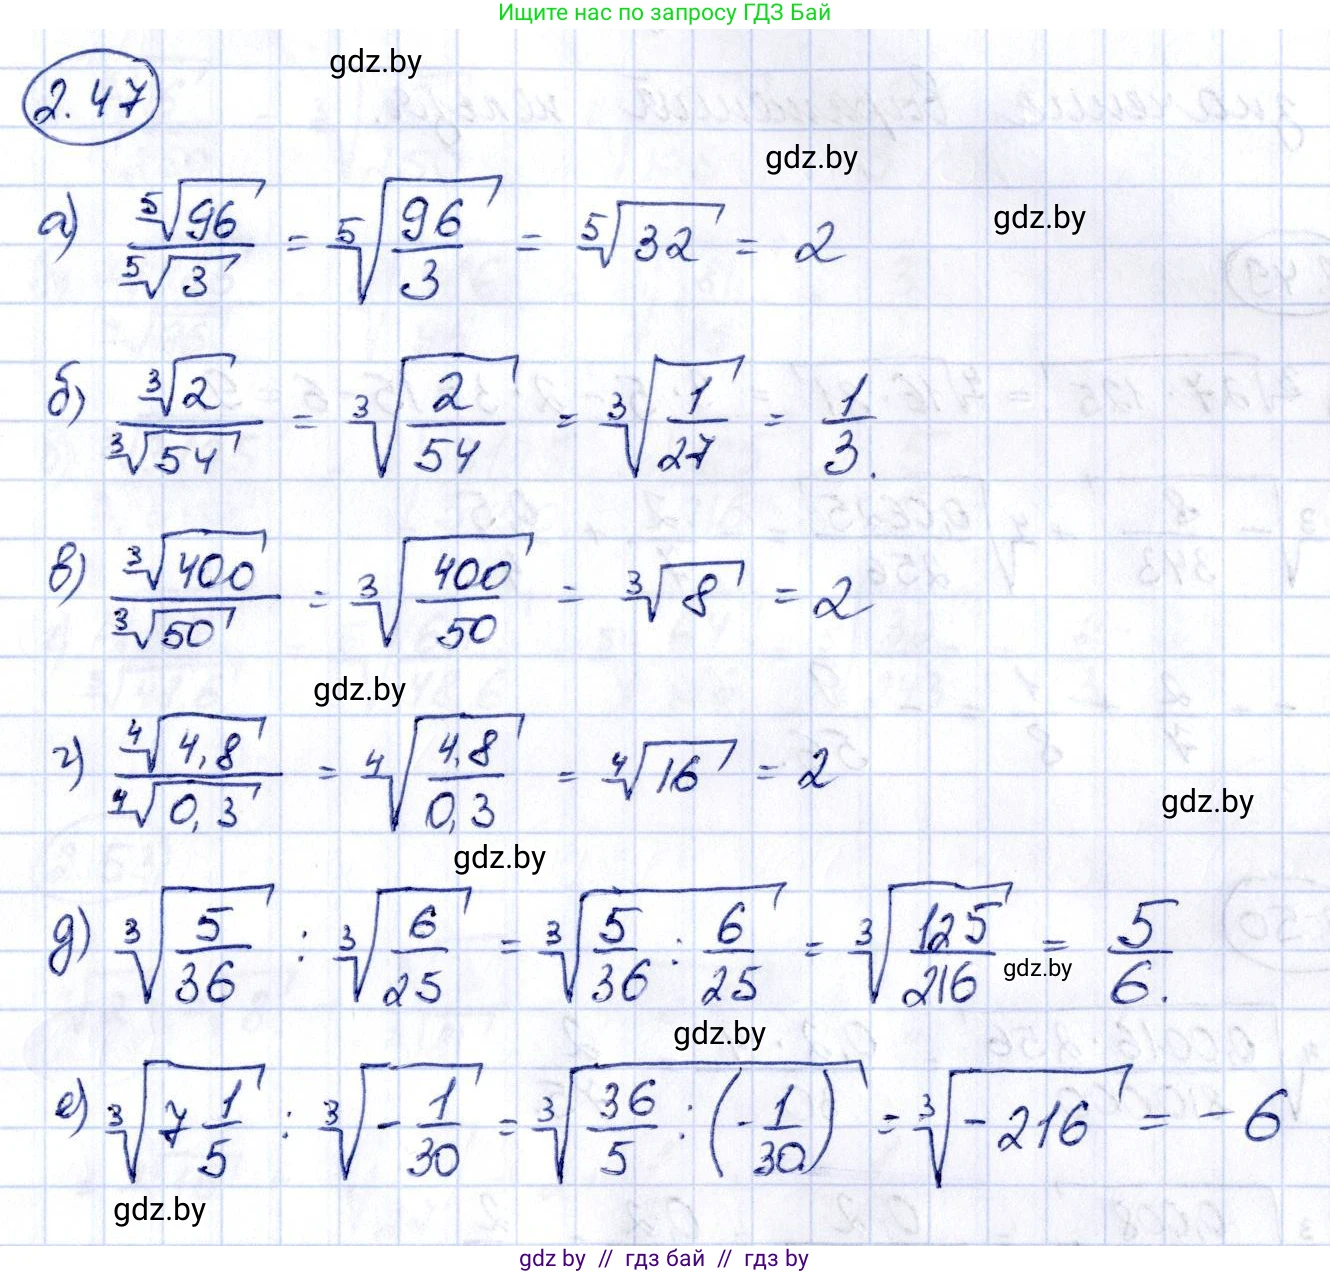 Ищите нас по запросу ГДЗ Бай
gdz.by
2.47
gdz.by
gdz.by
а) ⁵√96 / ⁵√3 = ⁵√(96/3) = ⁵√32 = 2
б) ³√2 / ³√54 = ³√(2/54) = ³√(1/27) = 1/3.
gdz.by
в) ³√400 / ³√50 = ³√(400/50) = ³√8 = 2
gdz.by
г) ⁴√4,8 / ⁴√0,3 = ⁴√(4,8/0,3) = ⁴√16 = 2
gdz.by
gdz.by
д) ³√(5/36) : ³√(6/25) = ³√(5/36 : 6/25) = ³√(125/216) = 5/6.
gdz.by
gdz.by
е) ³√(7 1/5) : ³√(-1/30) = ³√(36/5 : (-1/30)) = ³√(-216) = -6
gdz.by
gdz by // гдз бай // гдз by